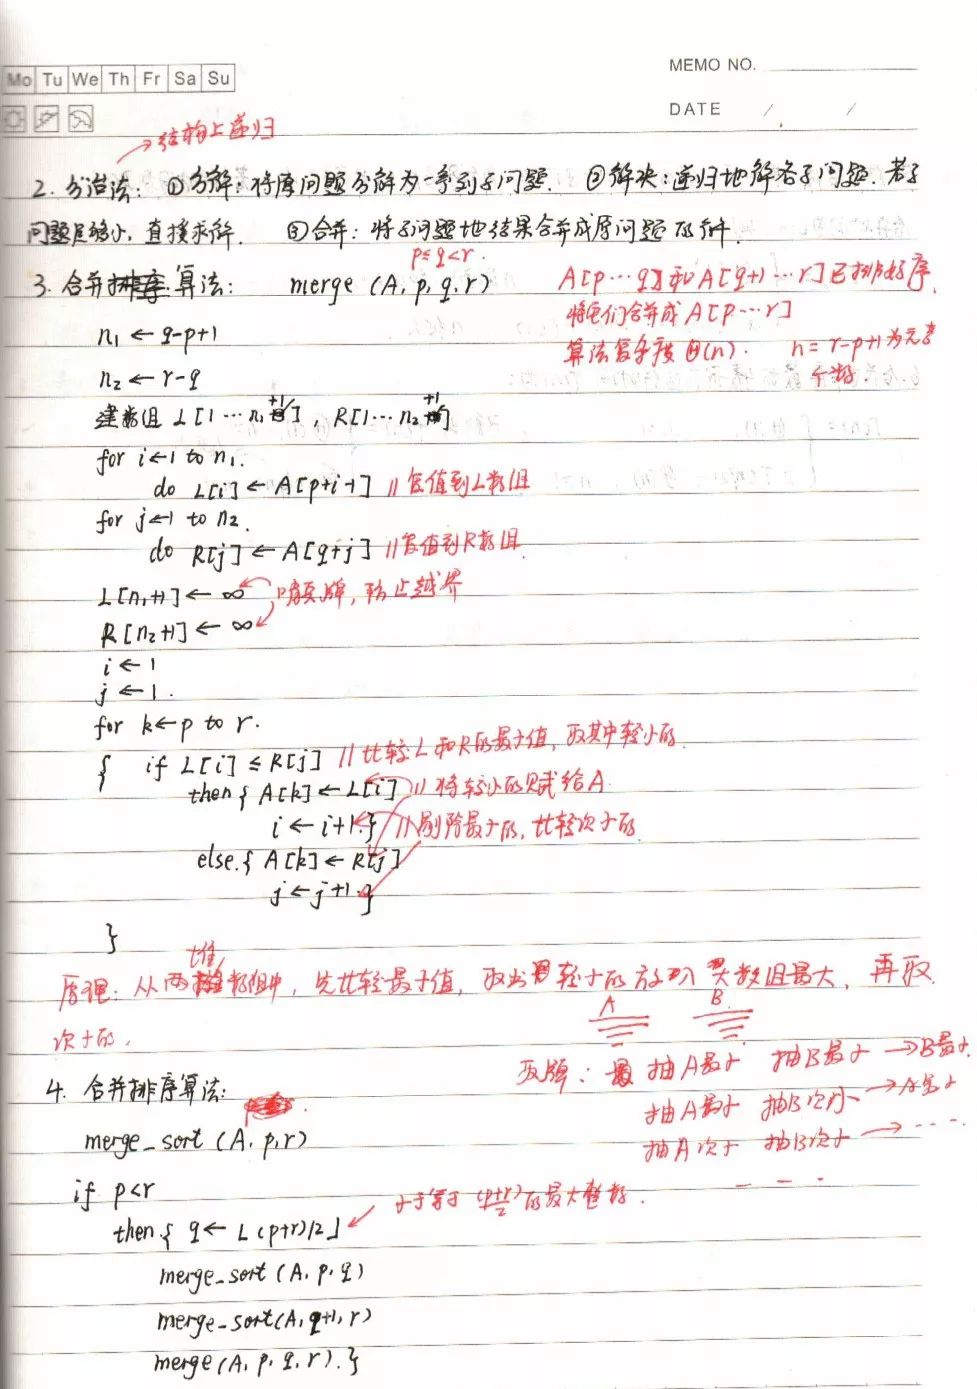 MEMO NO.
Mo Tu We Th Fr Sa Su
DATE / /
→结构上递归
2. 分治法: ①分解: 将原问题分解为一系列子问题. ②解决: 递归地解各子问题. 若子
问题足够小, 直接求解. ③合并: 将子问题地结果合并成原问题的解.
p≤q<r.
3. 合并算法: merge (A, p, q, r) A[p…q]和A[q+1…r]已排好序,
将它们合并成A[p…r]
n₁ ← q-p+1
算法复杂度 Θ(n). n = r-p+1为元素
个数
n₂ ← r-q
建数组 L[1…n₁+1], R[1…n₂+1]
for i←1 to n₁.
do L[i] ← A[p+i-1] //复值到L数组
for j←1 to n₂.
do R[j] ← A[q+j] //复值到R数组
L[n₁+1] ← ∞ 哨兵牌, 防止越界
R[n₂+1] ← ∞
i ← 1
j ← 1.
for k←p to r.
{ if L[i] ≤ R[j] //比较L和R的最小值, 取其中较小的.
then{ A[k] ← L[i] //将较小的赋给A
i ← i+1.} //剔除最小的, 比较次小的.
else.{ A[k] ← R[j]
j ← j+1.}
}
原理: 从两堆数组中, 先比较最小值, 取出较小的放入数组最大, 再取
次小的.
A B
取牌: 抽A最小 抽B最小 → B最小.
抽A最小 抽B次小 → A最小
抽A次小 抽B次小 → ...
- - -
4. 合并排序算法:
merge_sort (A, p, r)
if p<r
then{ q ← ⌊(p+r)/2⌋ 小于等于 (p+r)/2 的最大整数.
merge_sort (A, p, q)
merge_sort(A, q+1, r)
merge(A, p, q, r).}